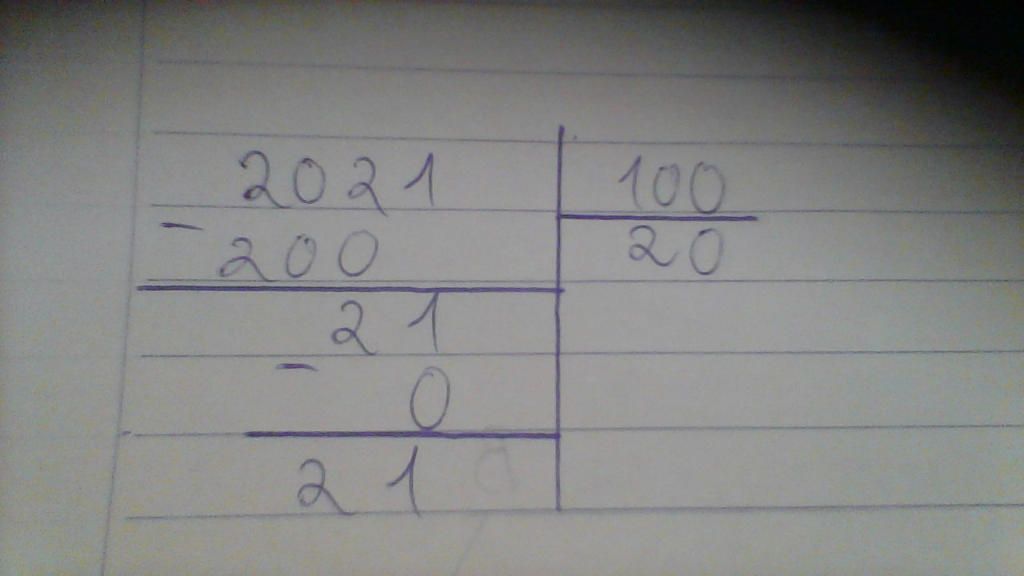 2021 100
- 200 20
21
- 0
21